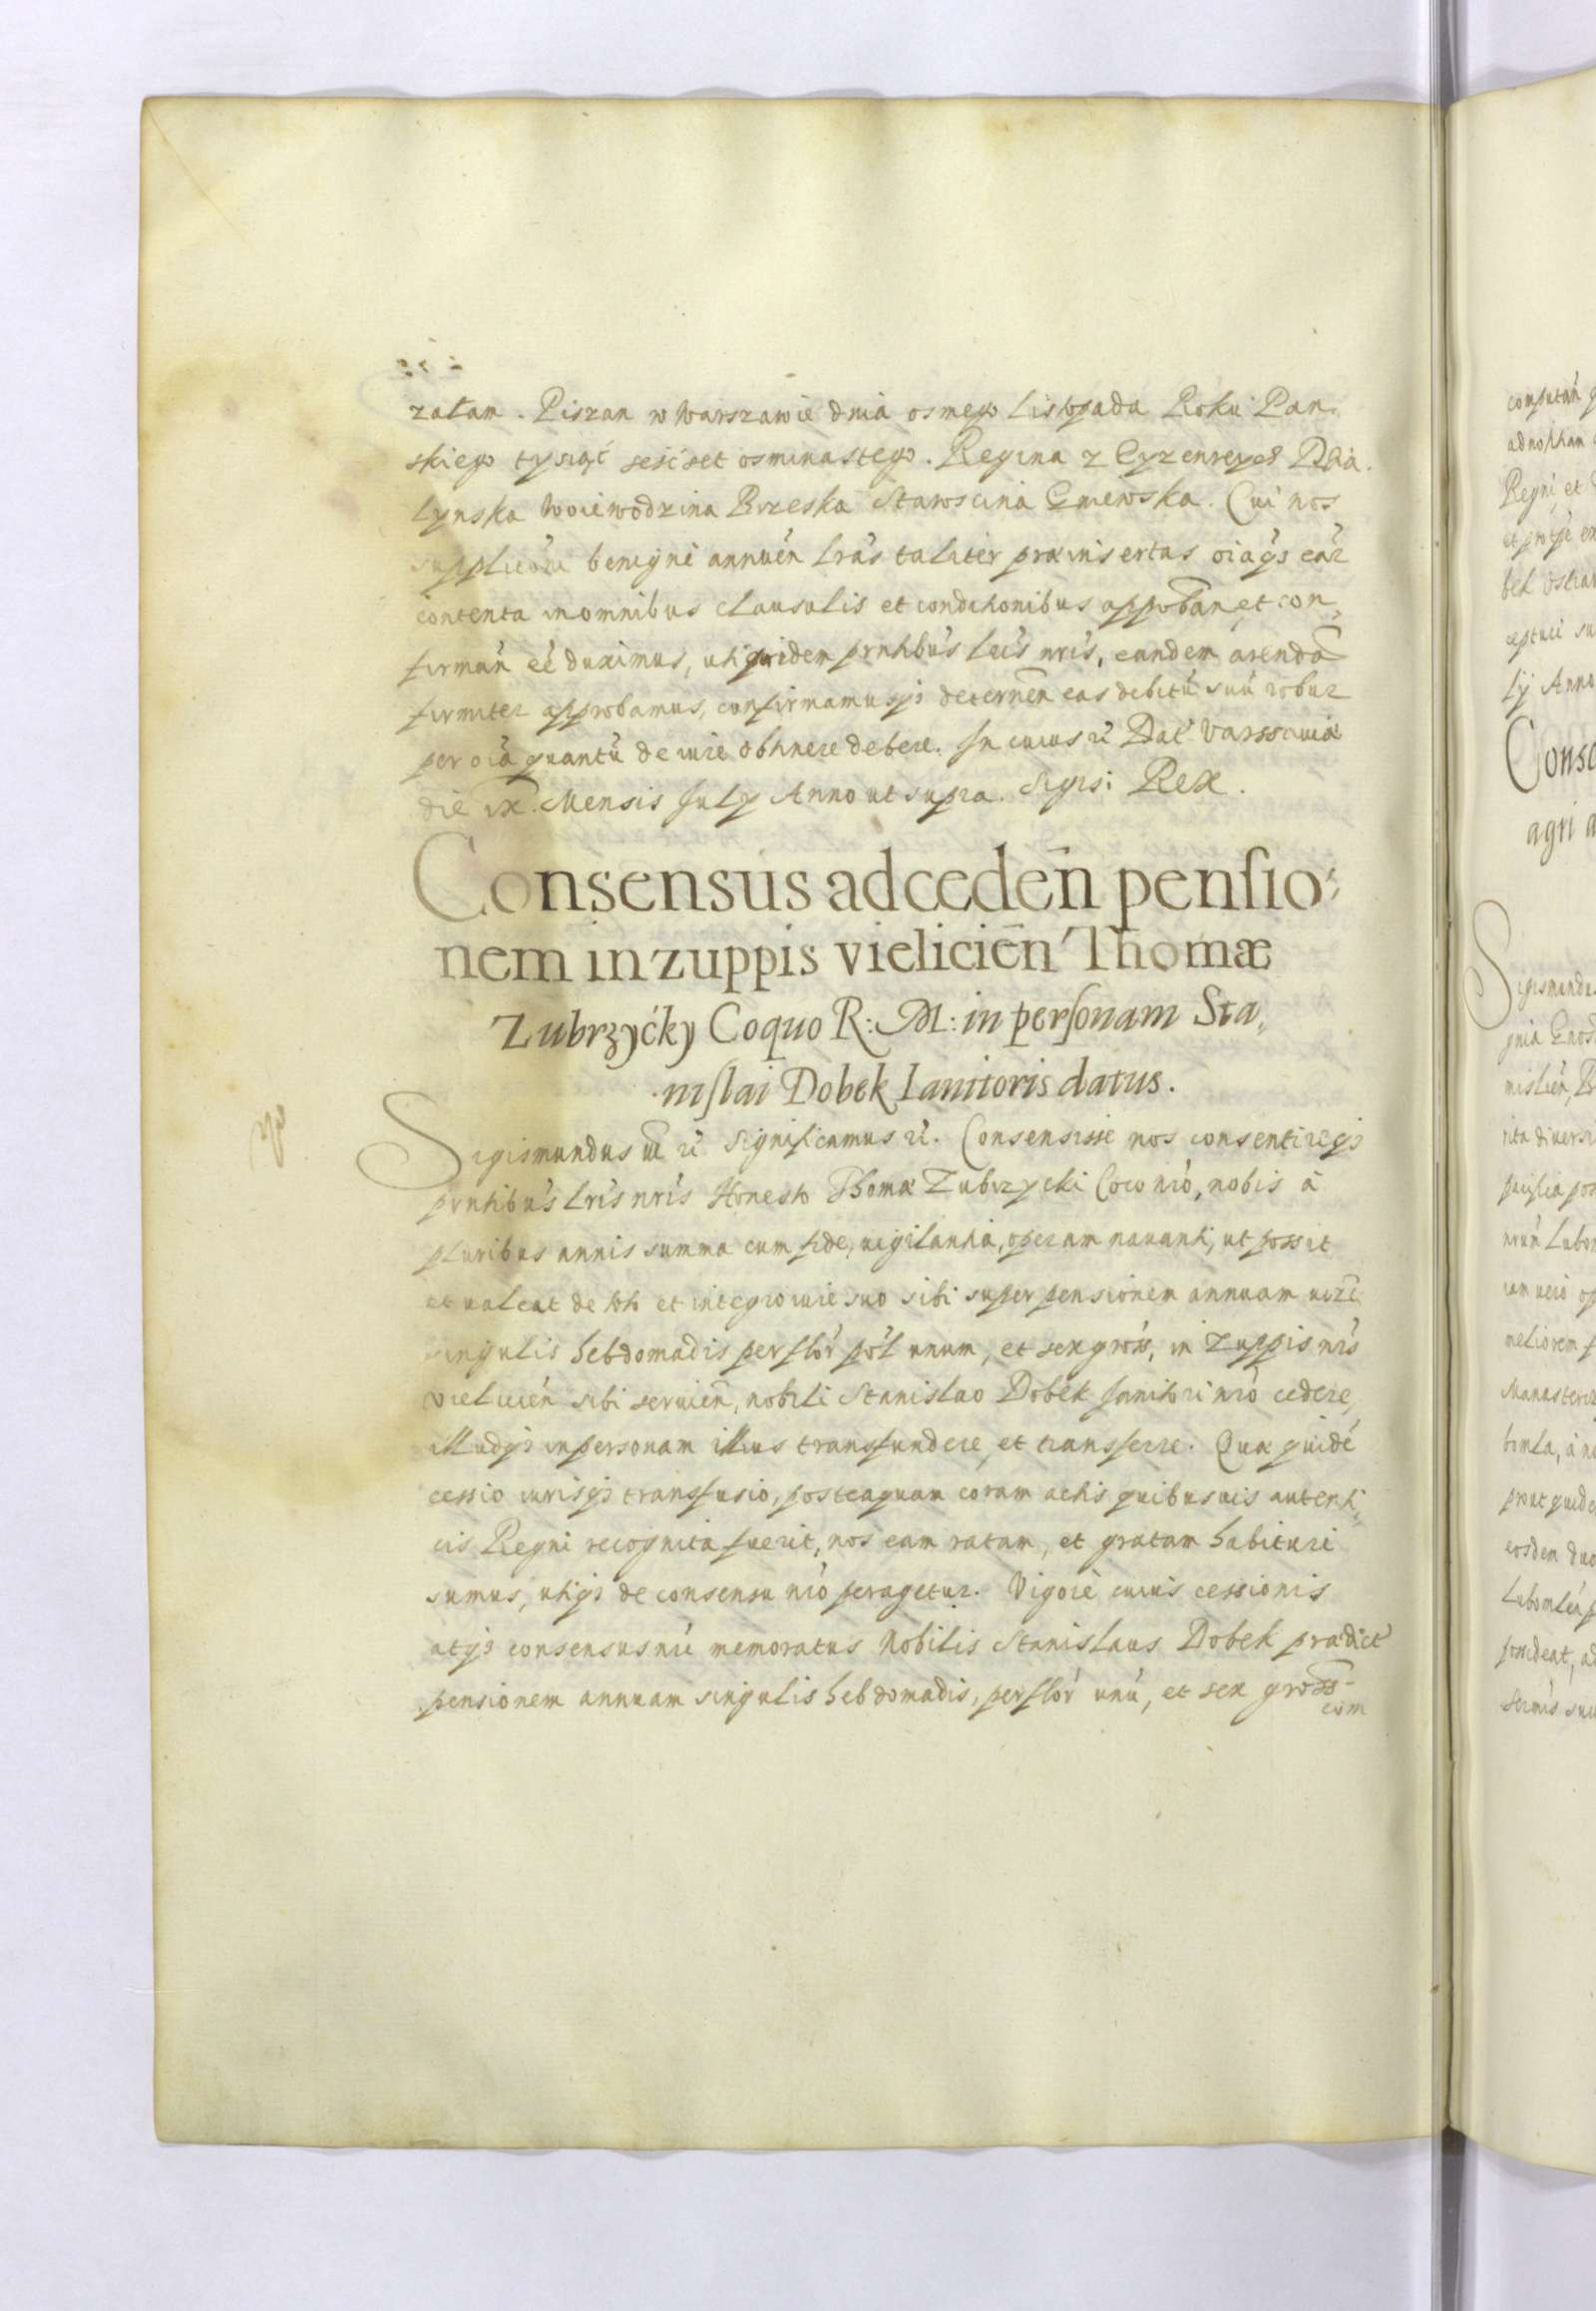 załam. Piszan w Warszawie dnia osmego Listopada Roku Pan.
skiego tysiąć sesćset osminastego. Regina z Eyzenreych Dzia.
lynska Woiewodzina Brzeska Staroscina Gniewska. Cui nos
benigne annuen̄ lrãs taliter præinsertas oiãqз eãr
contenta in omnibus clausulis et conditionibus approban̄, et con„
firman̄ eẽ duximus, uti quidem pñtibus lrĩs nrĩs, eandem arendã
firmiter approbamus, confirmamusqз decernen̄ eas debitũ suũ robur
per oiã quantũ de iure obtinere debere. In cuius r̃ Dat̃ Varssauiæ
die ix. Mensis July Anno ut supra. Sigis: Rex.
Consensus ad ceden̄ pensio„
nem in zuppis vielicien̄ Thomæ
Zubrzyćky Coquo R: M: in personam Sta„
nislai Dobek Ianitoris datus.
Sigismundus r̃ Significamus r̃. Consensisse nos consentireqз
pñtibus lrĩs nrĩs Honesto Thomæ Zubrzycki Coco nrõ, nobis à
pluribus annis summa cum fide, uigilantia, operam nauanti, ut possit
et ualeat de toto et integro iure suo sibi super pensionem annuam
singulis hebdomadis per flor̃ pol̃ unum, et sex gross, in Zuppis nrĩs
Vielicien̄ sibi seruien̄, nobili Stanislao Dobek Ianitori nrõ cedere,
illudqз in personam illius transfundere, et transferre. Quæ quidẽ
cessio iurisqз transfusio, posteaquam coram actis quibusuis autenti„
cis Regni recognita fuerit, nos eam ratam, et gratam habituri
sumus, utiqз de consensu nrõ peragetur. Vigore cuius cessionis
atqз consensus nrĩ memoratus Nobilis Stanislaus Dobek prædict̃
pensionem annuam singulis hebdomadis, per flor̃ unũ, et sex gross
com